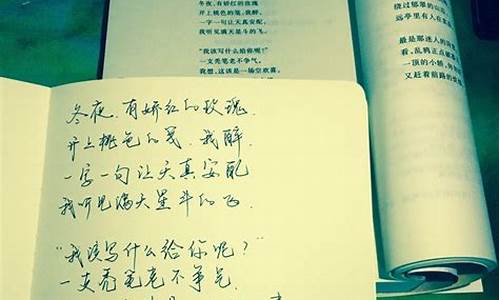 冬夜,有娇红的玫瑰
开上桃色的笺,我醉,
一字一句让天真安配,
我听见满天星斗的飞。
“我该写什么给你呢?”
一支秃笔老不争气。
我想,这该是一场空欢喜。
绕过郁翠的山
远亭里有人在
最是那迷人的
看,乱鸦正点
一顶的小轿,
又赶着前路的
冬夜,有娇红的玫瑰.
开上桃色的笺.我醉.
一字一句让天真安配
我听见满天星斗的飞.
“我该写什么给你呢?”
一支秃笔老不争气.